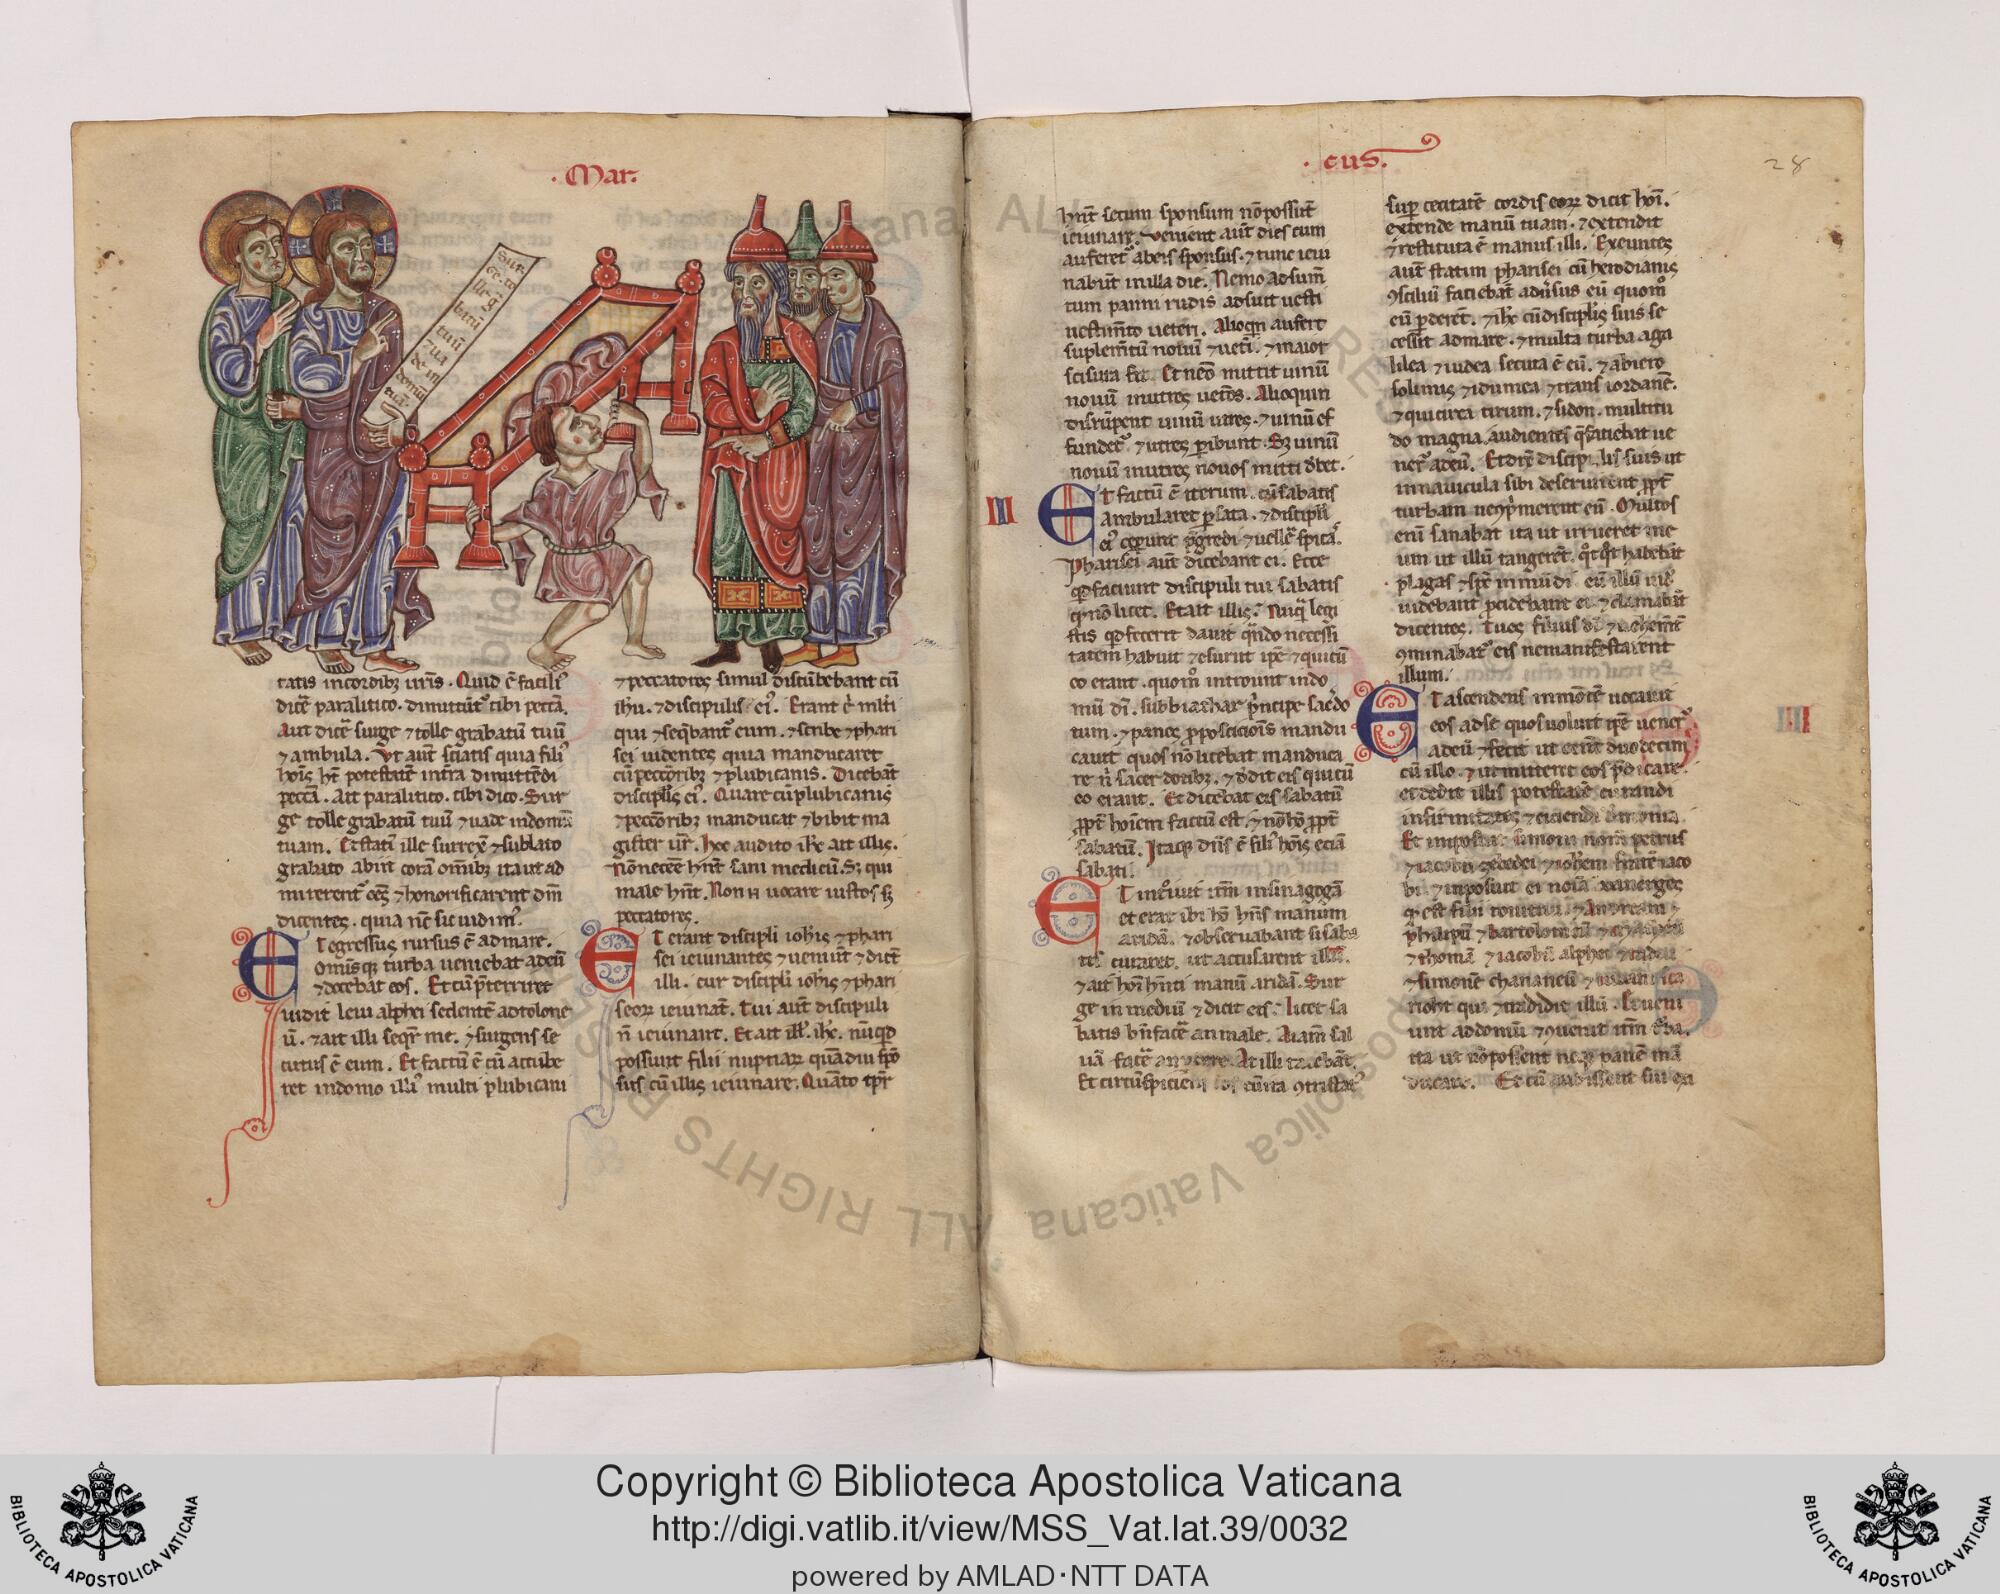 · Mar ·
Sur
ge · to
lle · g̃
batũ
tuũ
⁊ ua
de in
domũ
tuã ·
tatis incordibꝫ urĩs · Quid ẽ facili᷒
dicẽ paralitico · dimittũt᷒ tibi peccã.
Aut dicẽ surge ⁊ tolle grabatũ tuũ
⁊ ambula. Vt aut̃ sciatis quia fili᷒
hoĩs ht̃ potestatẽ intra dimittẽdi
peccã. Ait paralitico. tibi dico. Sur
ge tolle grabatũ tuũ ⁊ uade indomũ
tuam. Et statĩ ille surrex̃ ⁊ sublato
grabato abiit corã omĩbꝫ ita ut ad
mirerent᷒ oẽs ⁊ honorificarent dm̃
dicentes. quia nc̃ sic uidim᷒.
Et egressus rursus ẽ admare.
Omĩsqꝫ turba ueniebat adeũ
⁊ docebat eos. Et cũ p̃teriret
uidit leui alphei sedentẽ adtolone
ũ. ⁊ ait illi seqr̃ me. ⁊ surgens se
cutus ẽ eum. Et factũ ẽ cũ accũbe
ret indomo illi᷒ multi plubicani
⁊ peccatores simul discũbebant cũ
ihu. ⁊ discipulis ei᷒. Erant c̃ mlti
qui ⁊ seqbant᷒ eum. ⁊ scribe ⁊ phari
sei uidentes quia manducaret
cũ peccõribꝫ ⁊ plubicanis. Dicebãt
discipĺis ei᷒. Quare cũ plubicanis
⁊ peccõribꝫ manducat ⁊ bibit ma
gister ur̃. Hoc audito ihc̃ ait illis.
Nõ necẽe hñt sani medicũ. Sꝫ qui
male hñt. Non ñ uocare iustos sꝫ
peccatores.
Et erant discipĺi iohĩs ⁊ phari
sei ieiunantes ⁊ ueniũt ⁊ dict̃
illi. cur discipĺi iohĩs ⁊ phari
seoꝝ ieiunãt. Tui aut̃ discipuli
ñ ieiunant. Et ait ill᷒. ihc̃. nũqd
possunt filii nuptiaꝝ quãdiu spõ
sus cũ illis ieiunare. Quãto tpr̃
· cus ·
28
hñt secum sponsum nõ possũt
ieiunare. Venient aut̃ dies cum
auferet᷒ abeis sponsus. ⁊ tunc ieiu
nabũt inilla die. Nemo adsum̃
tum panni rudis adsuit uesti
uestim̃to ueteri. Alioqin aufert
suplem̃tũ nouũ ⁊ uetĩ. ⁊ maior
scisura fit. Et nẽo mittit uinũ
nouũ inutres uetẽs. Alioquin
disrũpent uinũ utres. ⁊ uinũ ef
fundet᷒ ⁊ utres p̃ibunt. Sꝫ uinũ
nouũ inutres nouos mitti d̃bet.
II
Et factũ ẽ iterum. cũ sabatis
ambularet p̃ sata. ⁊ discipĺi
ei᷒ ceperunt p̃gredi ⁊ uellẽ spicã.
Pharisei aut̃ dicebant ei. Ecce
qd faciunt discipuli tui sabatis
q nõ licet. Et ait illis. Nũq legi
stis qd fecerit dauit qñdo necessi
tatem habuit ⁊ esuriit ipẽ ⁊ qui cũ
eo erant. quom̃ introiuit indo
mũ dĩ. sub biathar p̃ncipe sac̃do
tum. ⁊ panes p̃posicioĩs mandu
cauit quos nõ licebat manduca
re ñ sacerdotibꝫ. ⁊ dedit eis qui cũ
eo erant. Et dicebat eis sabatũ
p̃pt hoĩem factũ est. ⁊ nõ hõ p̃pt
sabatũ. Itaqꝫ dñs ẽ fili᷒ hoĩs eciã
sabati.
Et introiuit itm̃ insinagogã
et erat ibi hõ hñs manum
aridã. ⁊ obseruabant si saba
tis curaret. ut accusarent illũ.
⁊ ait hoĩ hñti manũ aridã. Sur
ge in mediũ ⁊ dicit eis. licet sa
batis bñfacẽ an male. Aiam̃ sal
uã facẽ an perdere. At illi tacebãt.
Et circũspiciens eos cũ ira ꝯtristat᷒
sup̃ cecitatẽ cordis eoꝝ dicit hoĩ.
extende manũ tuam. ⁊ extendit
⁊ restituta ẽ manus illi. Exeuntes
aut̃ statim pharisei cũ herodianis
ꝯsciliũ faciebãt adũsus eũ quom̃
eũ p̃derẽt. ⁊ ihc̃ cũ discipĺis suis se
cessit admare. ⁊ multa turba aga
lilea ⁊ iudea secuta ẽ eũ. ⁊ abiero
solimis ⁊ idumea ⁊ trans iordanẽ.
⁊ qui circa tirum. ⁊ sidon. multitu
do magna. audientes q̃ faciebat ue
ner᷒ adeũ. Et dix̃ discipulis suis ut
innauicula sibi deseruirent p̃pt
turbam ne ꝯp̃merent eũ. Multos
enĩ sanabat ita ut irrueret ine
um ut illũ tangerẽt. qt qt habebãt
plagas ⁊ sp̃c inmũdi eũ illũ
uidebant p̃cidebant ei ⁊ clamabãt
dicentes. Tu es filius dĩ ⁊ uehem̃t
ꝯminabat᷒ eis ne manifestarent
illum.
III
Et ascendens inmõtẽ uocauit
eos adse quos uoluit ipẽ uener᷒
adeũ ⁊ fecit ut eẽnt duodecim
cũ illo. ⁊ ut mitteret eos p̃dicare.
et dedit illis potestatẽ curandi
infirmitates ⁊ eiciendi demonia
Et imposuit simoni nom̃ petrus
⁊ iacobũ zebedei ⁊ iohẽm fratrẽ iaco
bi. ⁊ inposuit ei noĩa boanerges
q̃ est filii tonitrui. ⁊ Andream ⁊
philipũ ⁊ bartolomeũ ⁊ matheũ
⁊ thomã ⁊ iacobũ alphei ⁊ tadeũ
⁊ simonẽ chananeũ ⁊ iudam sca
rioht qui ⁊ tradidit illũ. Et ueni
unt addomũ ⁊ ꝯuenit itm̃ turba.
ita ut nõ possent neqꝫ panẽ mã
ducare. Et cũ audissent sui exi
Copyright © Biblioteca Apostolica Vaticana
http://digi.vatlib.it/view/MSS_Vat.lat.39/0032
powered by AMLAD·NTT DATA
BIBLIOTECA APOSTOLICA VATICANA
BIBLIOTECA APOSTOLICA VATICANA